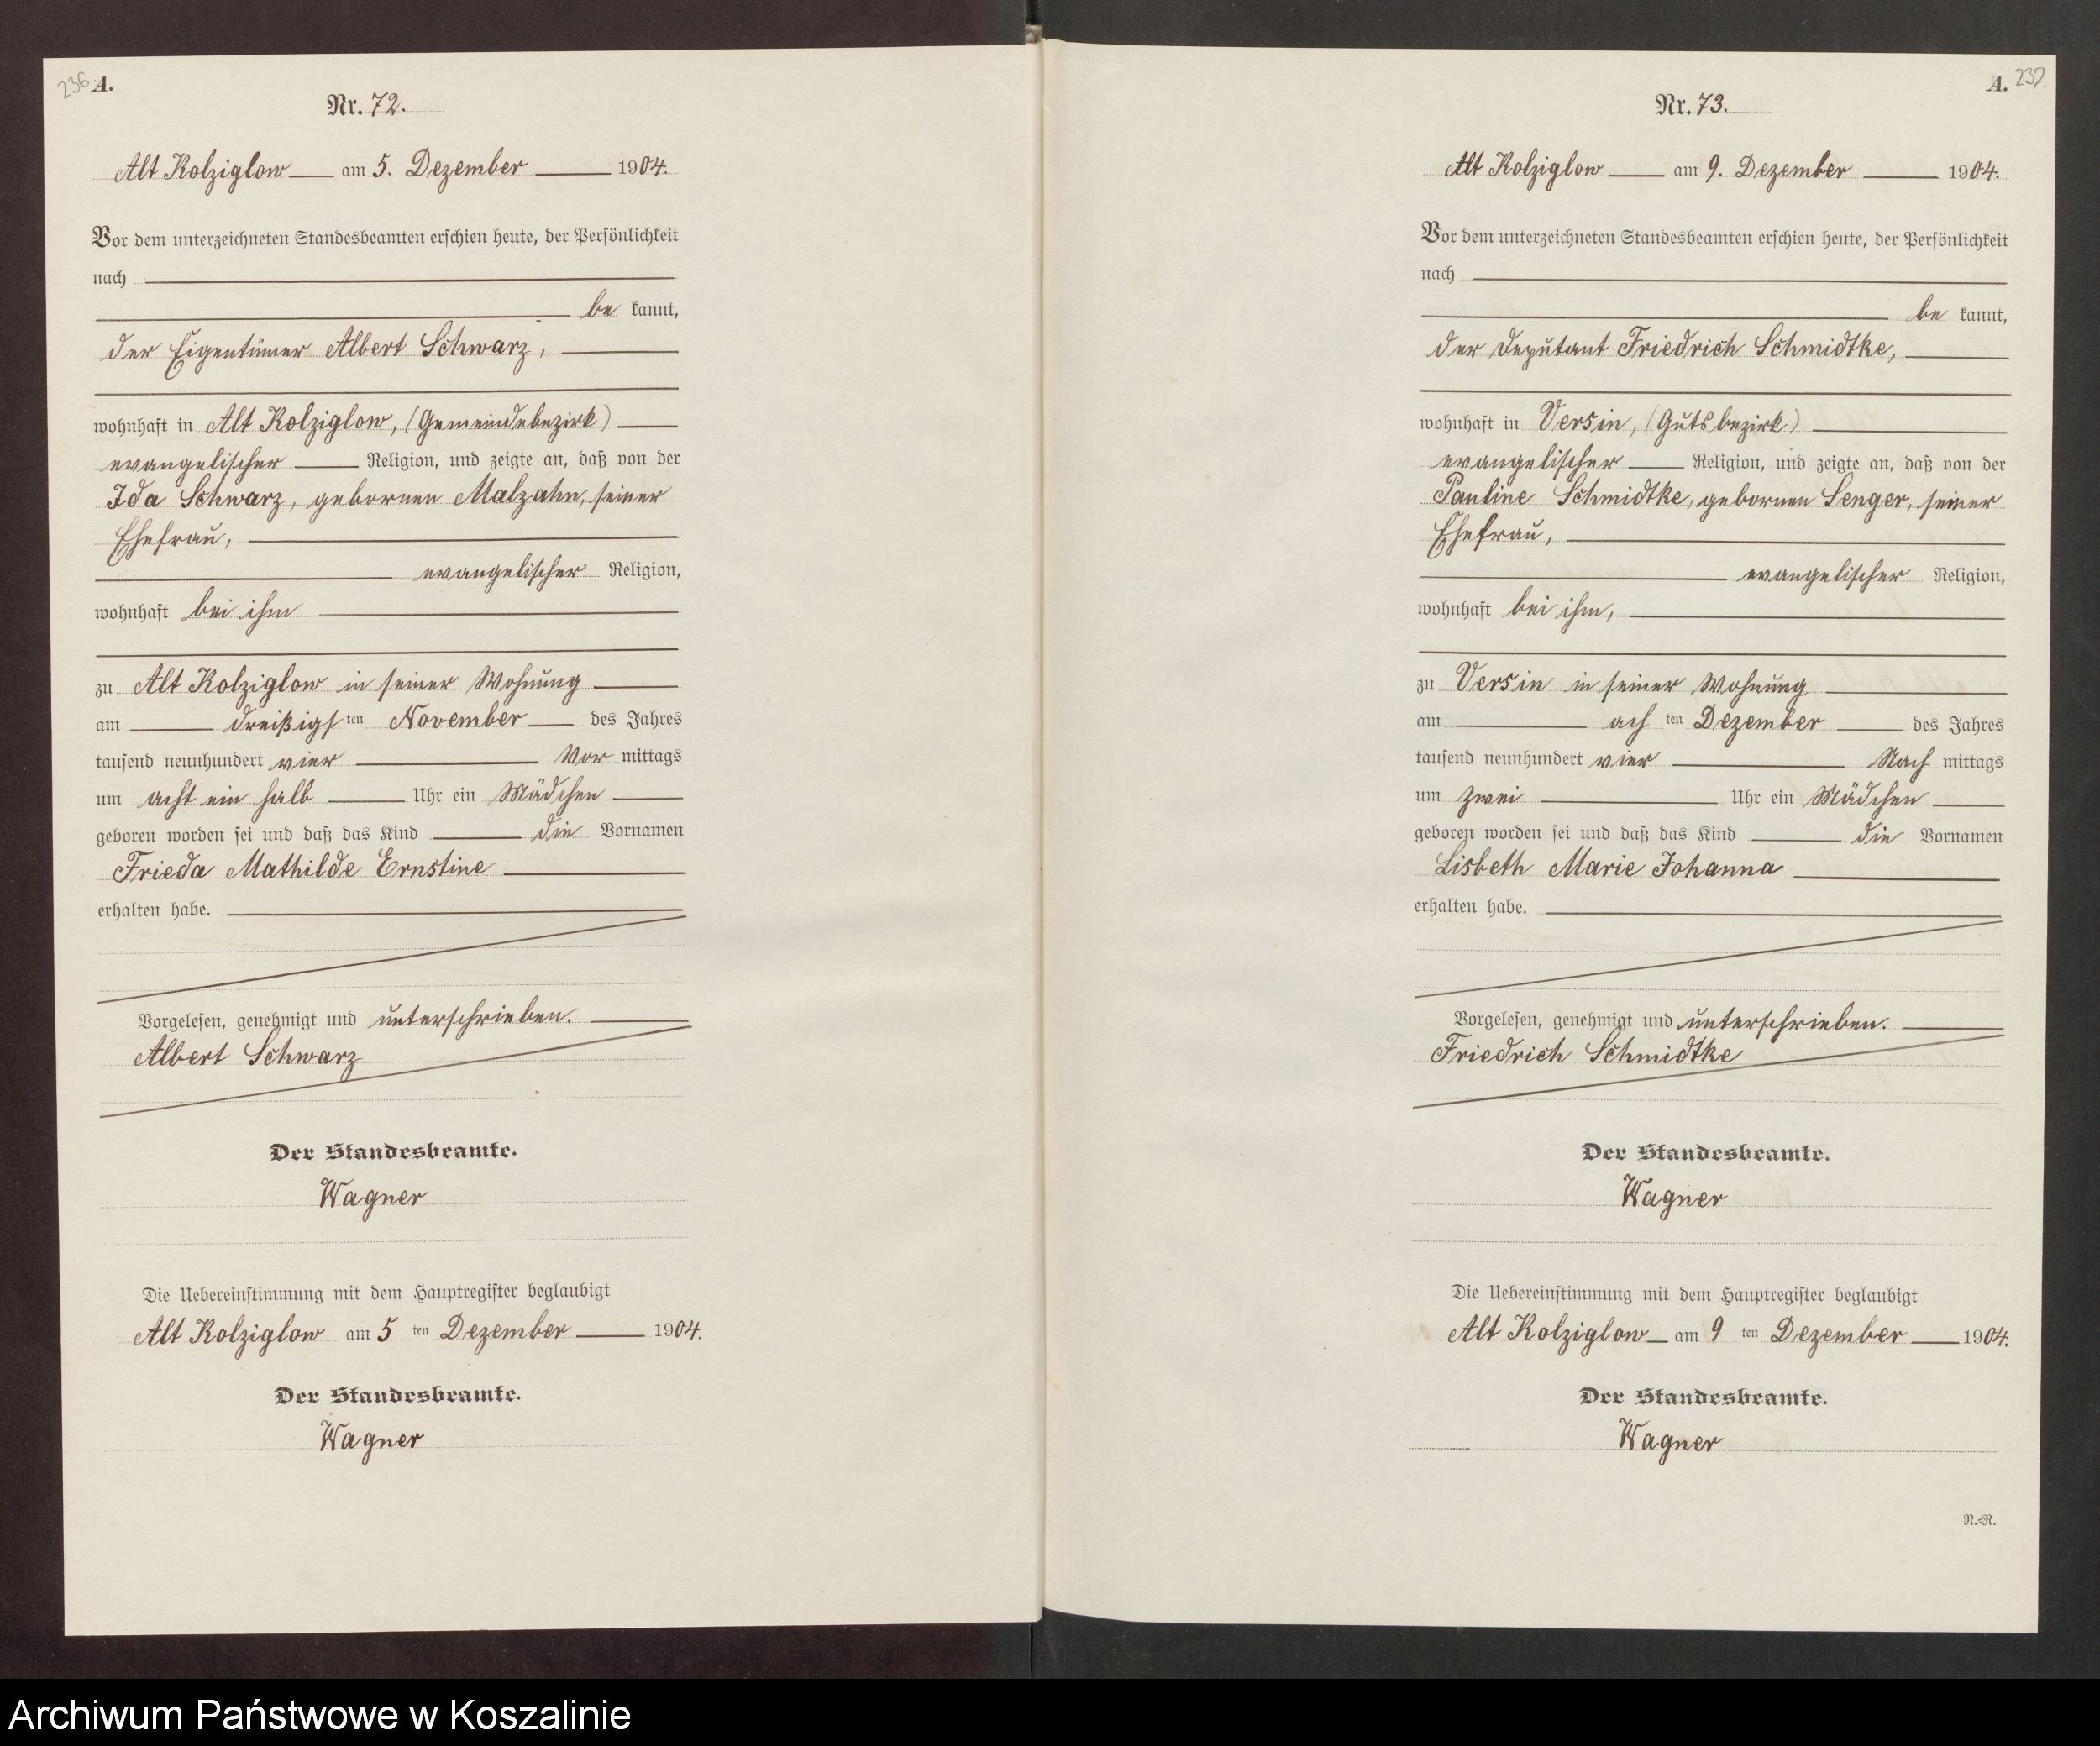 236 A.
Nr. 72.
Alt Kolziglow am 5. Dezember 1904.
Vor dem unterzeichneten Standesbeamten erschien heute, der Persönlichkeit
nach
be kannt,
der Eigentümer Albert Schwarz,
wohnhaft in Alt Kolziglow, (Gemeindebezirk)
evangelischer Religion, und zeigte an, daß von der
Ida Schwarz, gebornen Malzahn, seiner
Ehefrau,
evangelischer Religion,
wohnhaft bei ihm
zu Alt Kolziglow in seiner Wohnung
am dreißigs ten November des Jahres
tausend neunhundert vier Vor mittags
um acht ein halb Uhr ein Mädchen
geboren worden sei und daß das Kind die Vornamen
Frieda Mathilde Ernstine
erhalten habe.
Vorgelesen, genehmigt und unterschrieben.
Albert Schwarz
Der Standesbeamte.
Wagner
Die Uebereinstimmung mit dem Hauptregister beglaubigt
Alt Kolziglow am 5 ten Dezember 1904.
Der Standesbeamte.
Wagner
A. 237.
Nr. 73.
Alt Kolziglow am 9. Dezember 1904.
Vor dem unterzeichneten Standesbeamten erschien heute, der Persönlichkeit
nach
be kannt,
der Deputant Friedrich Schmidtke,
wohnhaft in Versin, (Gutsbezirk)
evangelischer Religion, und zeigte an, daß von der
Pauline Schmidtke, gebornen Senger, seiner
Ehefrau,
evangelischer Religion,
wohnhaft bei ihm,
zu Versin in seiner Wohnung
am ach ten Dezember des Jahres
tausend neunhundert vier Nach mittags
um zwei Uhr ein Mädchen
geboren worden sei und daß das Kind die Vornamen
Lisbeth Marie Johanna
erhalten habe.
Vorgelesen, genehmigt und unterschrieben.
Friedrich Schmidtke
Der Standesbeamte.
Wagner
Die Uebereinstimmung mit dem Hauptregister beglaubigt
Alt Kolziglow am 9 ten Dezember 1904.
Der Standesbeamte.
Wagner
N.=R.
Archiwum Państwowe w Koszalinie